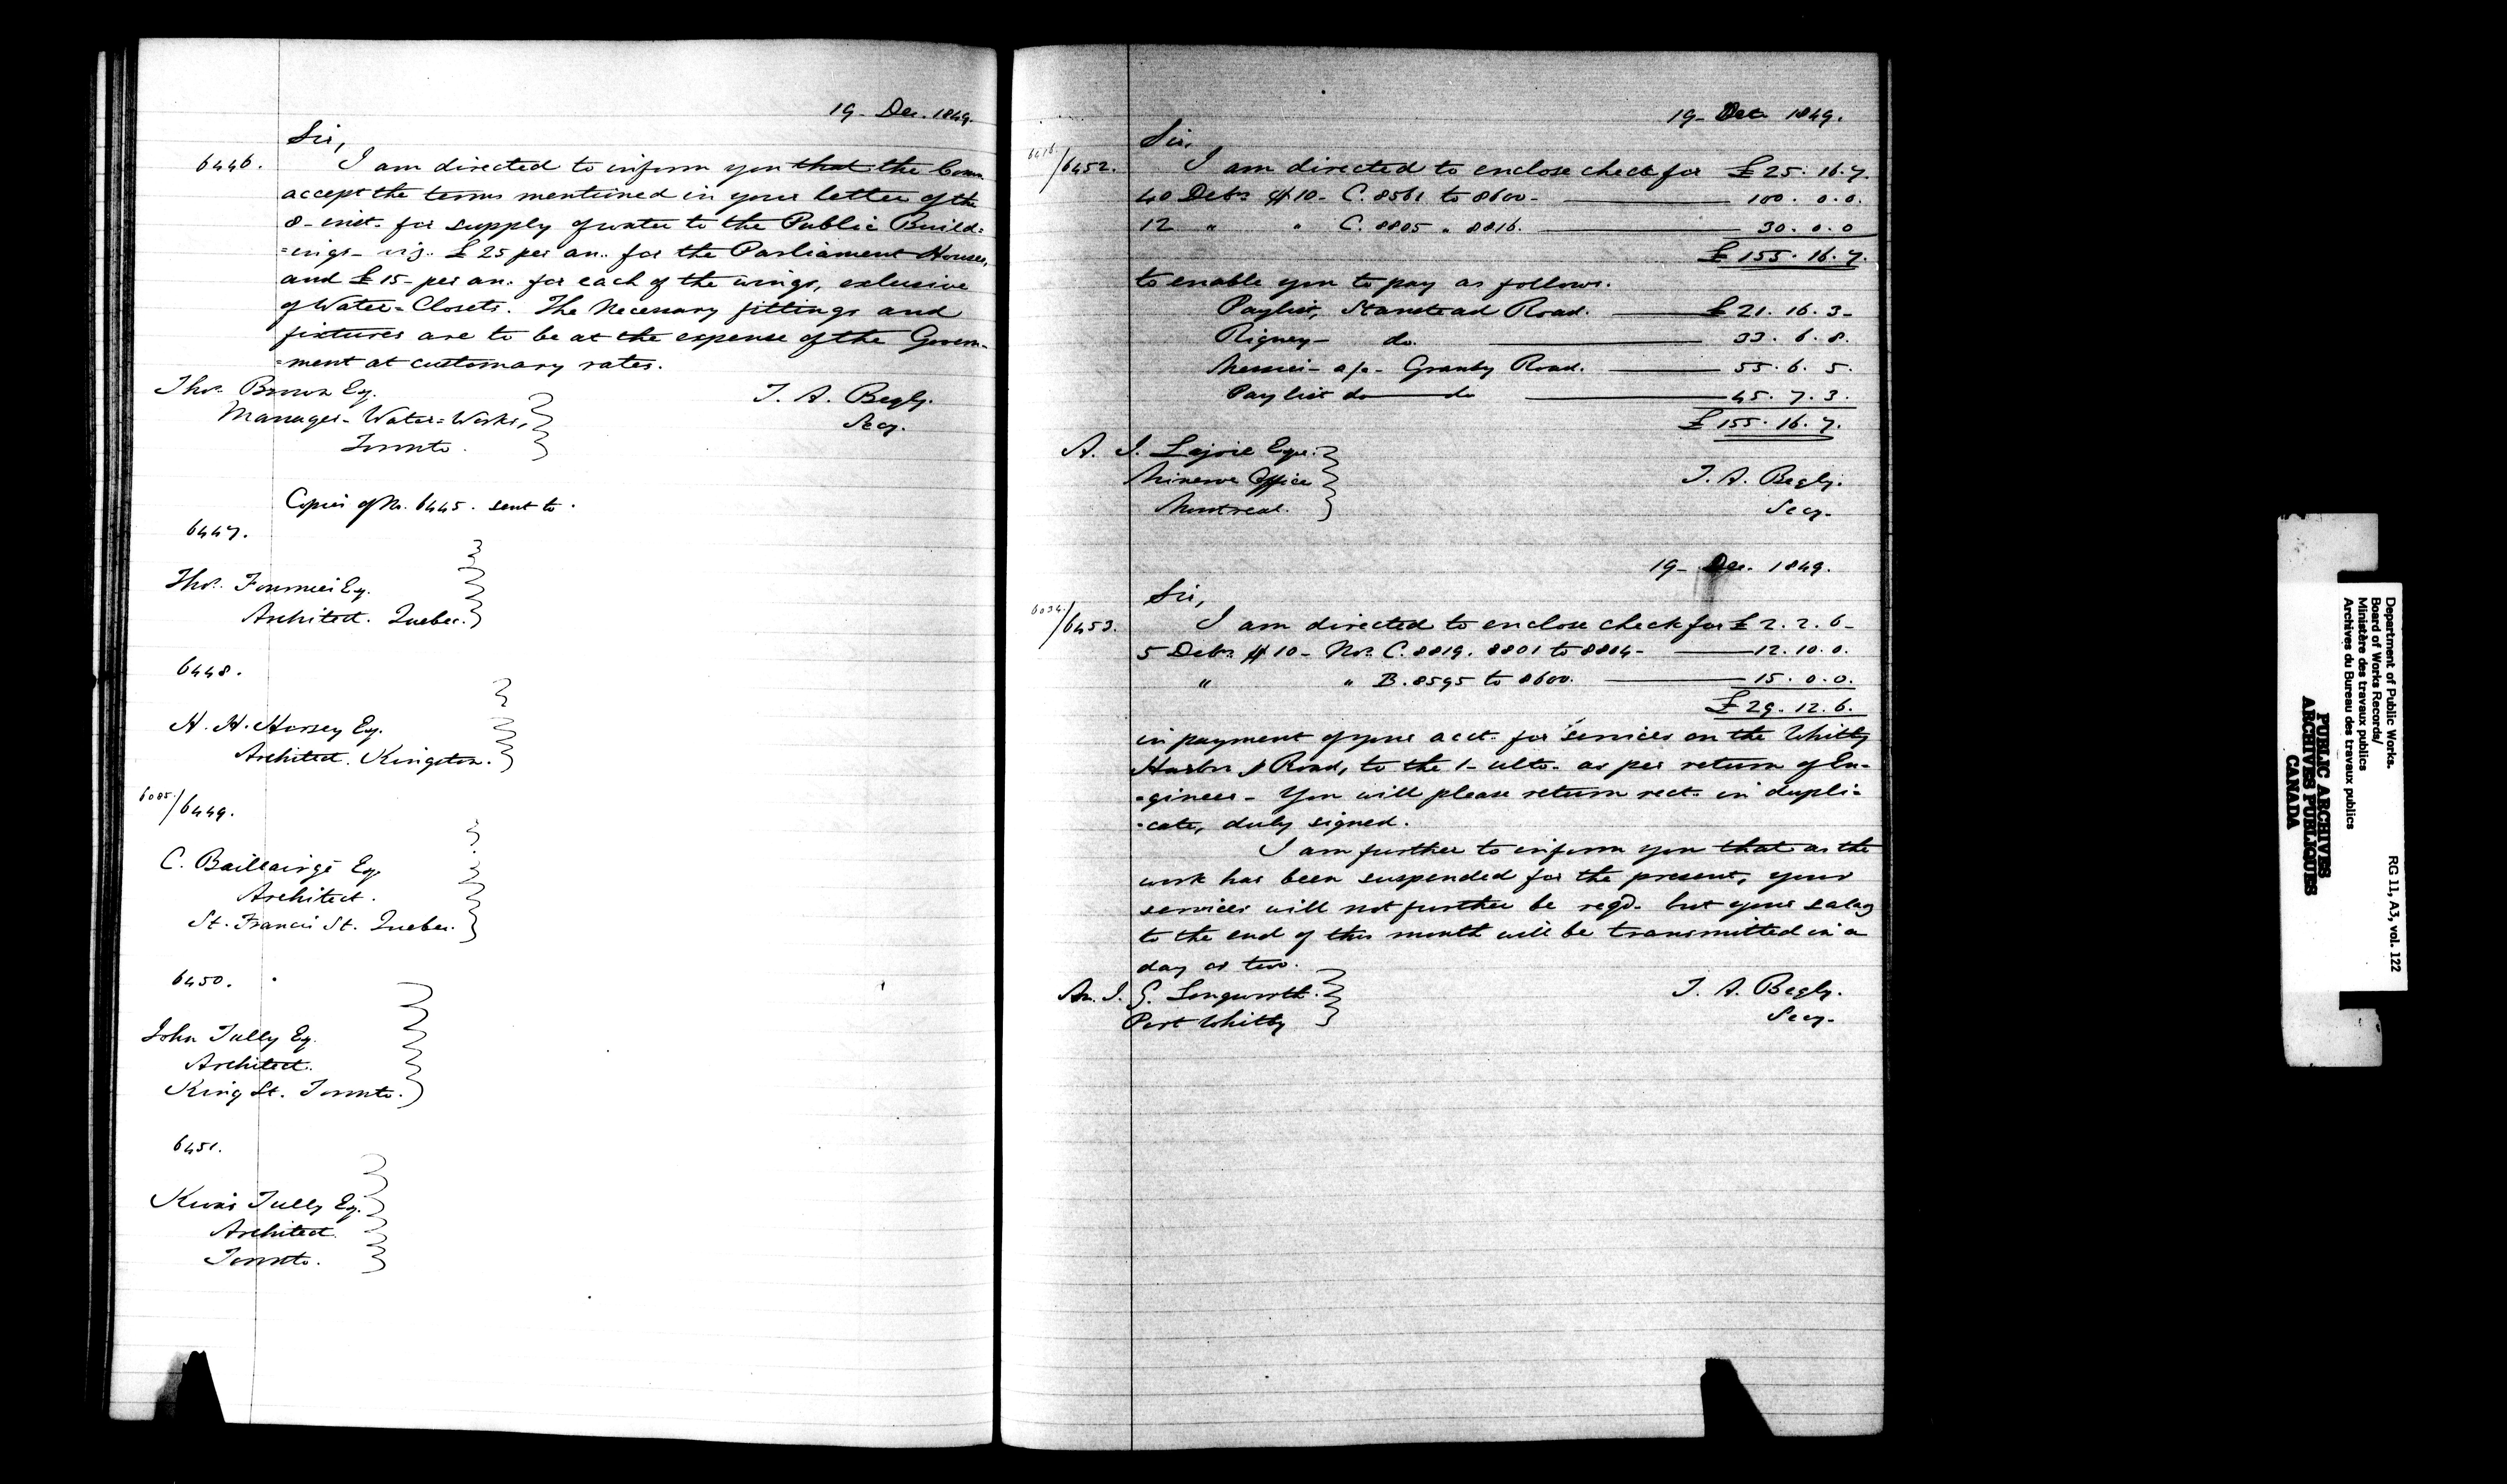 19- Dec. 1849.
Sir,
6446. I am directed to inform you that the Comrs
accept the terms mentioned in your letter of the
8- inst. for supply of water to the Public Build=
=ings- viz. £25 per an. for the Parliament Houses,
and £15- per an. for each of the wings, exclusive
of Water=Closets. The Necessary fittings and
fixtures are to be at the expense of the Govern-
=ment at customary rates.
Thos. Brown Esq.
Manager- Water=Works,
Toronto.
T. A. Begly.
Secy.
Copies of No. 6445. sent to.
6447.
Thos. Fournier Esq.
Architect. Quebec.
6448.
H. H. Horsey Esq.
Architect. Kingston.
6085/6449.
C. Baillairgé Esq.
Architect.
St. Francis St. Quebec.
6450.
John Tully Esq.
Architect.
King St. Toronto.
6451.
Kivas Tully Esq.
Architect
Toronto.
19- Dec 1849.
Sir,
/6452. I am directed to enclose check for £25. 16. 7.
40 Debs. $10- C. 8561 to 8600- 100. 0. 0.
12 " " C. 8805 " 8816. 30. 0. 0
£155. 16. 7.
to enable you to pay as follows.
Paylist, Stanstead Road. £21. 16. 3-
Rigney- do. 33. 6. 8.
a/c- Granby Road. 55. 6. 5.
Paylist do do 45. 7. 3.
£155. 16. 7.
A. J. Lajoie Esqre.
Minerve Office
Montreal.
T. A. Begly.
Secy-
19- Dec. 1849.
Sir,
6034/6453. I am directed to enclose check for £2. 2. 6-
5 Debs. $10- Nos. C. 8819. 8801 to 8804- 12. 10. 0.
" " B. 8595 to 8600. 15. 0. 0.
£29. 12. 6.
in payment of your acct. for services on the Whitby
Harbor & Road, to the 1- ulto. as per return of En-
=gineer- You will please return rect. in dupli-
=cate, duly signed.
I am further to inform you that as the
work has been suspended for the present, your
services will not further be reqd. but your salary
to the end of this month will be transmitted in a
day or two.
Mr. J. G. Longworth.
Port Whitby
T. A. Begly.
Secy-
Department of Public Works.
Board of Works Records/
Ministère des travaux publics
Archives du Bureau des travaux publics
RG 11, A3, vol. 122
PUBLIC ARCHIVES
ARCHIVES PUBLIQUES
CANADA